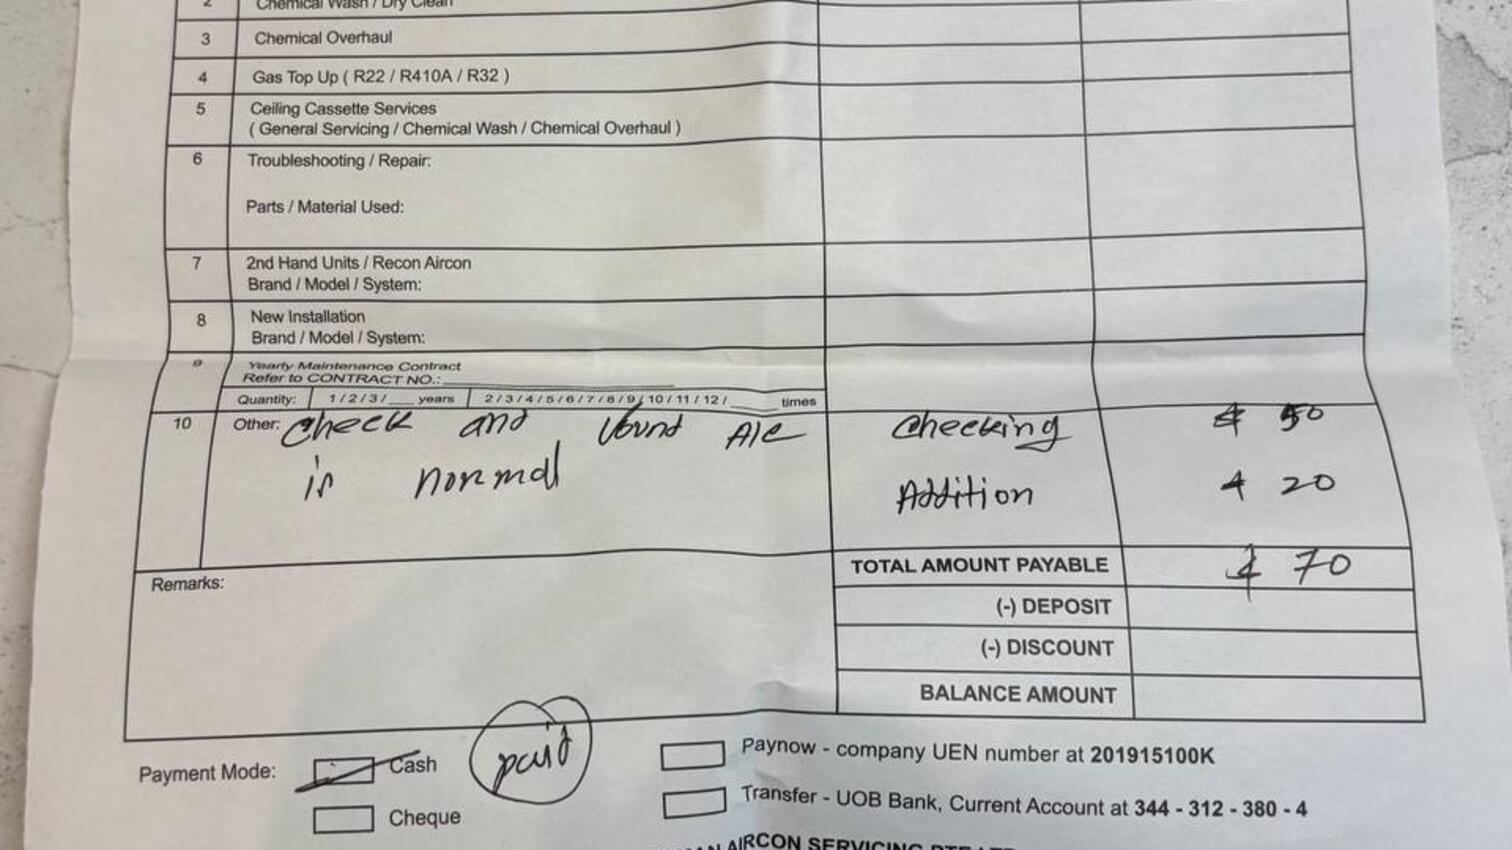 2 Chemical Wash / Dry Clean
3 Chemical Overhaul
4 Gas Top Up ( R22 / R410A / R32 )
5 Ceiling Cassette Services
( General Servicing / Chemical Wash / Chemical Overhaul )
6 Troubleshooting / Repair:
Parts / Material Used:
7 2nd Hand Units / Recon Aircon
Brand / Model / System:
8 New Installation
Brand / Model / System:
9 Yearly Maintenance Contract
Refer to CONTRACT NO.:
Quantity: 1 / 2 / 3 / ___ years 2 / 3 / 4 / 5 / 6 / 7 / 8 / 9 / 10 / 11 / 12 / ___ times
10 Other: Check and Vound A/C Checking $ 50
is normal Addition $ 20
TOTAL AMOUNT PAYABLE $ 70
Remarks:
(-) DEPOSIT
(-) DISCOUNT
BALANCE AMOUNT
Payment Mode: Cash paid Paynow - company UEN number at 201915100K
Cheque Transfer - UOB Bank, Current Account at 344 - 312 - 380 - 4
AIRCON SERVICING PTE